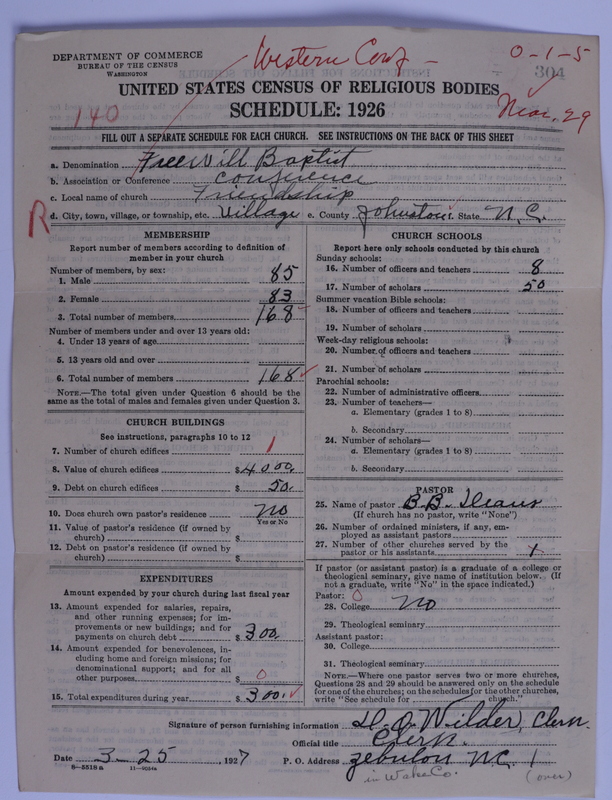 Western Conf - 0-1-5
DEPARTMENT OF COMMERCE
BUREAU OF THE CENSUS
WASHINGTON
304
UNITED STATES CENSUS OF RELIGIOUS BODIES
140 SCHEDULE: 1926 Nov. 29
FILL OUT A SEPARATE SCHEDULE FOR EACH CHURCH. SEE INSTRUCTIONS ON THE BACK OF THIS SHEET
a. Denomination Free Will Baptist
b. Association or Conference Conference
c. Local name of church Friendship
R d. City, town, village, or township, etc. Village e. County Johnston State N.C.
MEMBERSHIP
Report number of members according to definition of
member in your church
Number of members, by sex:
1. Male 85
2. Female 83
3. Total number of members 168
Number of members under and over 13 years old:
4. Under 13 years of age
5. 13 years old and over
6. Total number of members 168
NOTE.—The total given under Question 6 should be the
same as the total of males and females given under Question 3.
CHURCH BUILDINGS
See instructions, paragraphs 10 to 12
7. Number of church edifices 1
8. Value of church edifices $4000.
9. Debt on church edifices $50.
10. Does church own pastor's residence No
Yes or No
11. Value of pastor's residence (if owned by
church) $
12. Debt on pastor's residence (if owned by
church) $
EXPENDITURES
Amount expended by your church during last fiscal year
13. Amount expended for salaries, repairs,
and other running expenses; for im-
provements or new buildings; and for
payments on church debt $300.
14. Amount expended for benevolences, in-
cluding home and foreign missions; for
denominational support; and for all
other purposes $0
15. Total expenditures during year $300.
CHURCH SCHOOLS
Report here only schools conducted by this church
Sunday schools:
16. Number of officers and teachers 8
17. Number of scholars 50
Summer vacation Bible schools:
18. Number of officers and teachers
19. Number of scholars
Week-day religious schools:
20. Number of officers and teachers
21. Number of scholars
Parochial schools:
22. Number of administrative officers
23. Number of teachers—
a. Elementary (grades 1 to 8)
b. Secondary
24. Number of scholars—
a. Elementary (grades 1 to 8)
b. Secondary
PASTOR
25. Name of pastor B.B. Deans
(If church has no pastor, write "None")
26. Number of ordained ministers, if any, em-
ployed as assistant pastors
27. Number of other churches served by the
pastor or his assistants 1
If pastor (or assistant pastor) is a graduate of a college or
theological seminary, give name of institution below. (If
not a graduate, write "No" in the space indicated.)
Pastor: 0
28. College No
29. Theological seminary
Assistant pastor:
30. College
31. Theological seminary
NOTE.—Where one pastor serves two or more churches,
Questions 28 and 29 should be answered only on the schedule
for one of the churches; on the schedules for the other churches,
write "See schedule for church."
Signature of person furnishing information Wilder, Clerk.
Official title Clerk.
Date 3-25 1927 P. O. Address Zebulon N.C. 1
8—5518 a 11—9034a in Wake Co. (over)